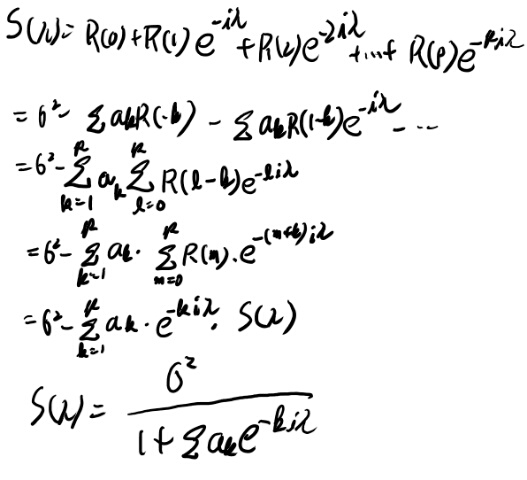 S(λ) = R(0) + R(1)e^{-iλ} + R(2)e^{-2iλ} + ... + R(p)e^{-piλ}
= σ² - Σ a_k R(-k) - Σ a_k R(1-k) e^{-iλ} - ...
= σ² - Σ_{k=1}^{p} a_k Σ_{l=0}^{p} R(l-k) e^{-liλ}
= σ² - Σ_{k=1}^{p} a_k · Σ_{m=0}^{p} R(m) · e^{-(m+k)iλ}
= σ² - Σ_{k=1}^{p} a_k · e^{-kiλ} · S(λ)
S(λ) = σ² / (1 + Σ a_k e^{-kiλ})